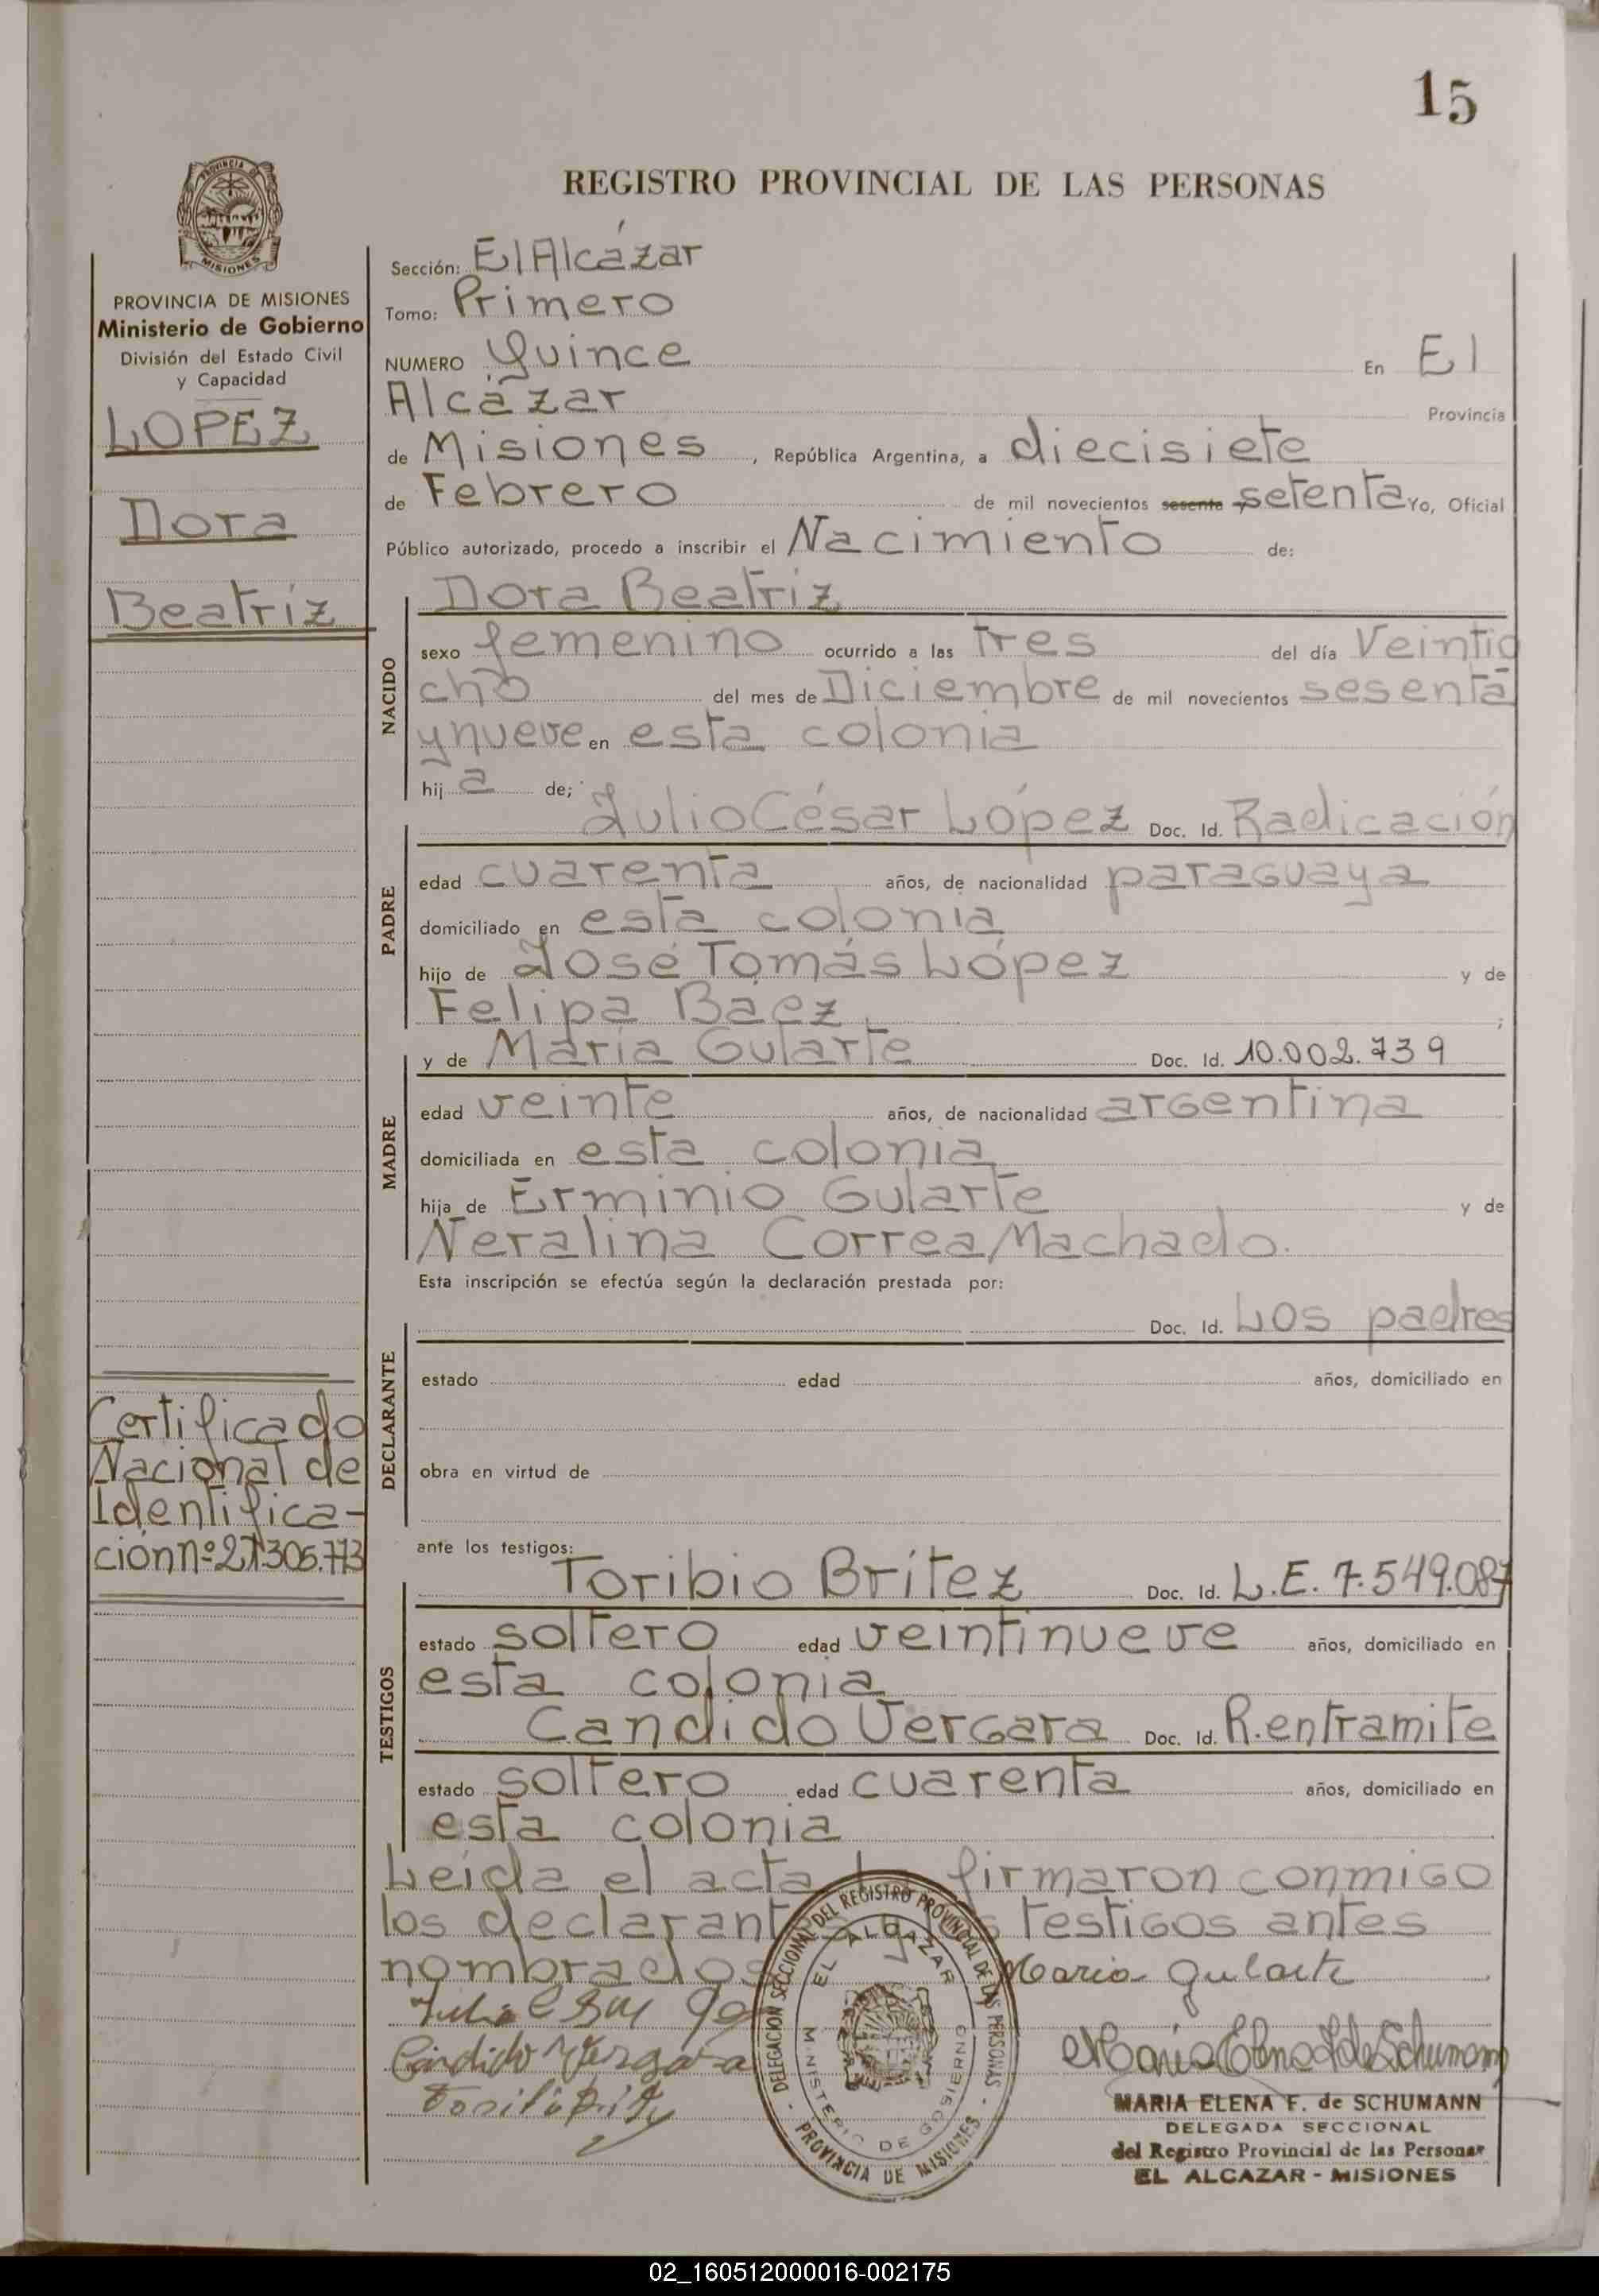 15
PROVINCIA DE
MISIONES
REGISTRO PROVINCIAL DE LAS PERSONAS
PROVINCIA DE MISIONES
Ministerio de Gobierno
División del Estado Civil
y Capacidad
LOPEZ
Dora
Beatríz
Certificado
Nacional de
Identifica-
ción nº 21.306.773
Sección: El Alcázar
Tomo: Primero
NUMERO Quince En El
Alcázar Provincia
de Misiones, República Argentina, a diecisiete
de Febrero de mil novecientos sesenta setenta Yo, Oficial
Público autorizado, procedo a inscribir el Nacimiento de:
NACIDO
Dora Beatríz
sexo femenino ocurrido a las tres del día Veintio
cho del mes de Diciembre de mil novecientos sesenta
y nueve en esta colonia
hij a de;
PADRE
Julio César López Doc. Id. Radicación
edad cuarenta años, de nacionalidad paraguaya
domiciliado en esta colonia
hijo de José Tomás López y de
Felipa Báez ;
MADRE
y de María Gularte Doc. Id. 10.002.739
edad veinte años, de nacionalidad argentina
domiciliada en esta colonia
hija de Erminio Gularte y de
Neralina Correa Machado.
Esta inscripción se efectúa según la declaración prestada por:
DECLARANTE
Doc. Id. Los padres
estado edad años, domiciliado en
obra en virtud de
ante los testigos:
TESTIGOS
Toribio Brítez Doc. Id. L.E. 7.549.087
estado soltero edad veintinueve años, domiciliado en
esta colonia
Candido Vergara Doc. Id. R. en tramite
estado soltero edad cuarenta años, domiciliado en
esta colonia
Leída el acta la firmaron conmigo
los declarantes y los testigos antes
nombrados
Maria Gularte
Candido Vergara
DELEGACION SECCIONAL DEL REGISTRO PROVINCIAL DE LAS PERSONAS
- PROVINCIA DE MISIONES -
EL ALCAZAR
MINISTERIO DE GOBIERNO
Maria Elena F de Schumann
MARIA ELENA F. de SCHUMANN
DELEGADA SECCIONAL
del Registro Provincial de las Personas
EL ALCAZAR - MISIONES
02_160512000016-002175